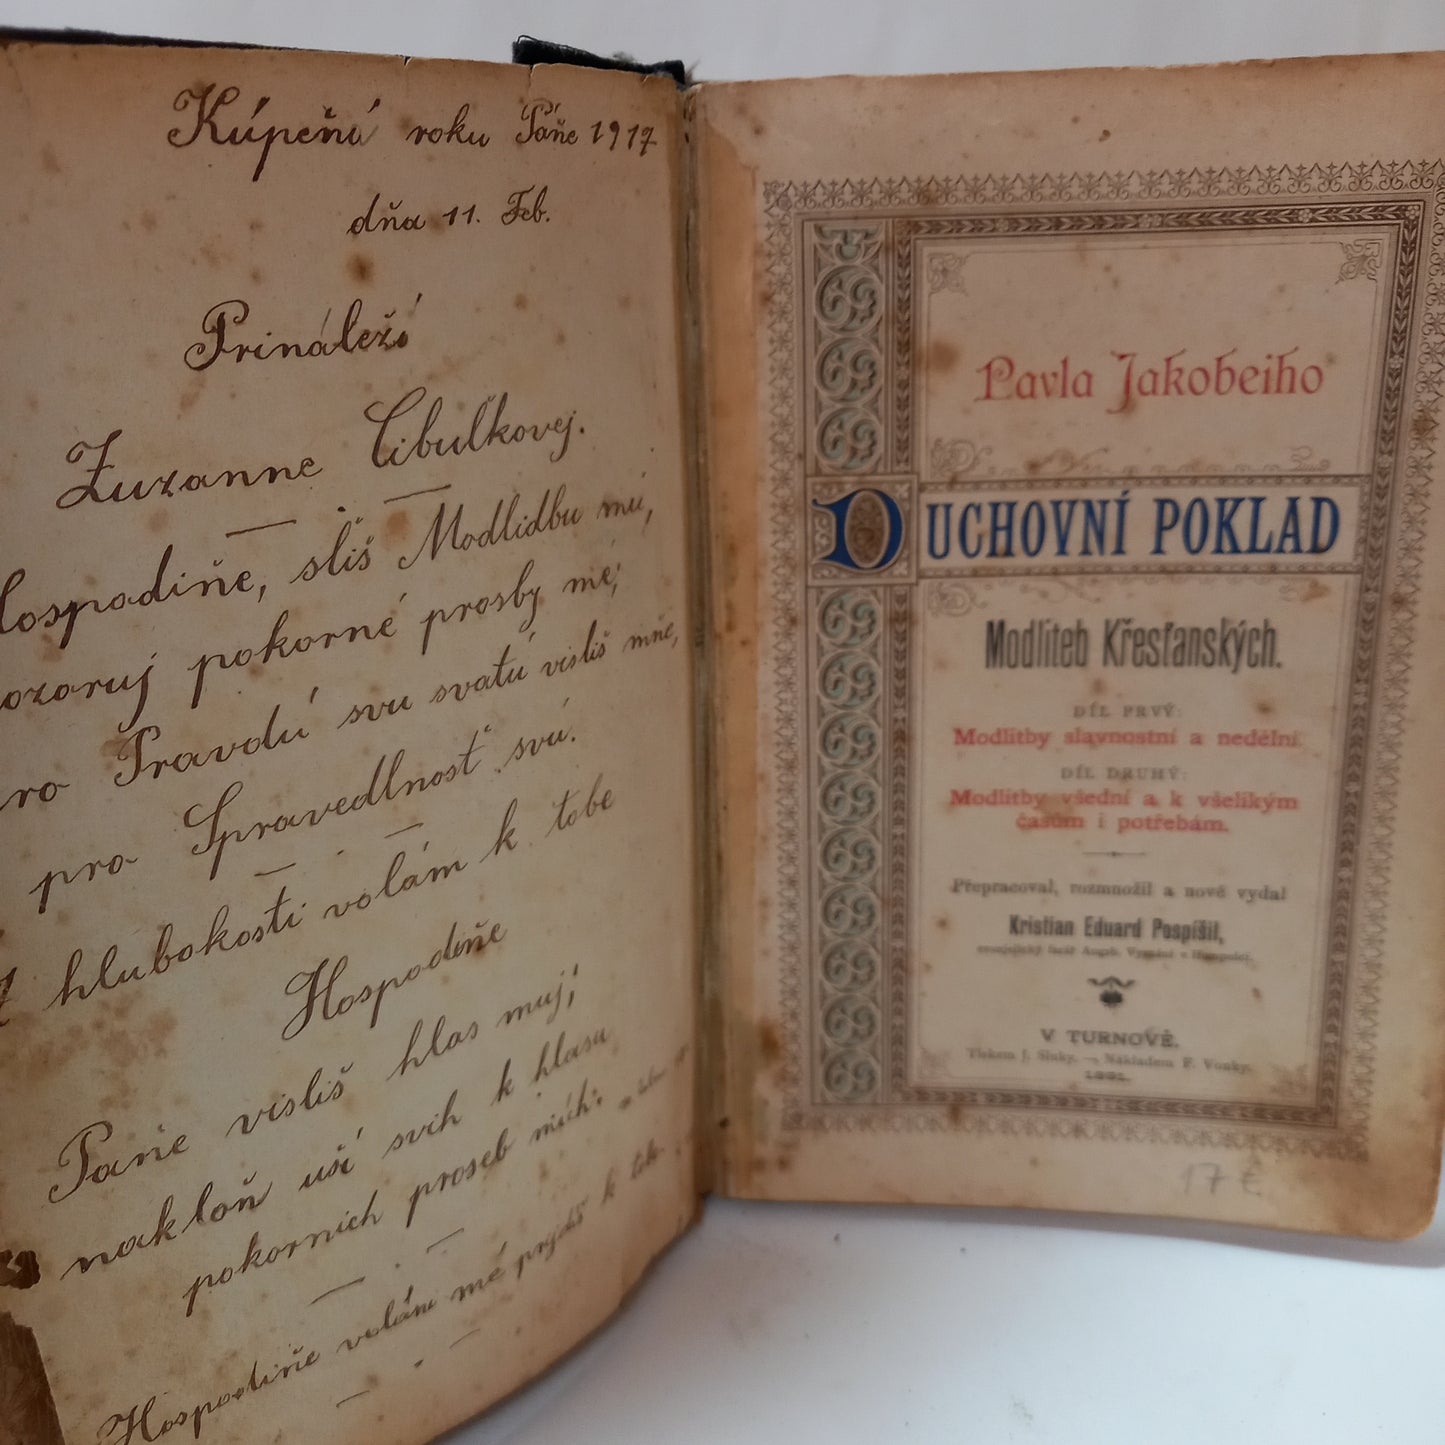 Kúpeňí roku Páňe 1917
dňa 11. Feb.
Prináleží
Zuzanne Cibuľkovej.
Hospodiňe, sliš Modlidbu mú,
pozoruj pokorné prosby mé;
pro Pravdú svu svatú visliš mňe,
pro Spravedlnosť svú.
Z hlubokosti volám k tobe
Hospodiňe
Pane visliš hlas muj;
nakloň uší svih k hlasu
pokorních proseb mích.
Hospodiňe volám mé k tobe
Pavla Jakobeiho
DUCHOVNÍ POKLAD
Modliteb Křesťanských.
DÍL PRVÝ:
Modlitby slavnostní a nedělní.
DÍL DRUHÝ:
Modlitby všední a k všelikým
časům i potřebám.
Přepracoval, rozmnožil a nově vydal
Kristian Eduard Pospíšil,
evanjelický farář Augsb. Vyznání v Humpolci.
V TURNOVĚ.
Tiskem J. Sluky. — Nákladem F. Vonky.
1891.
17 €